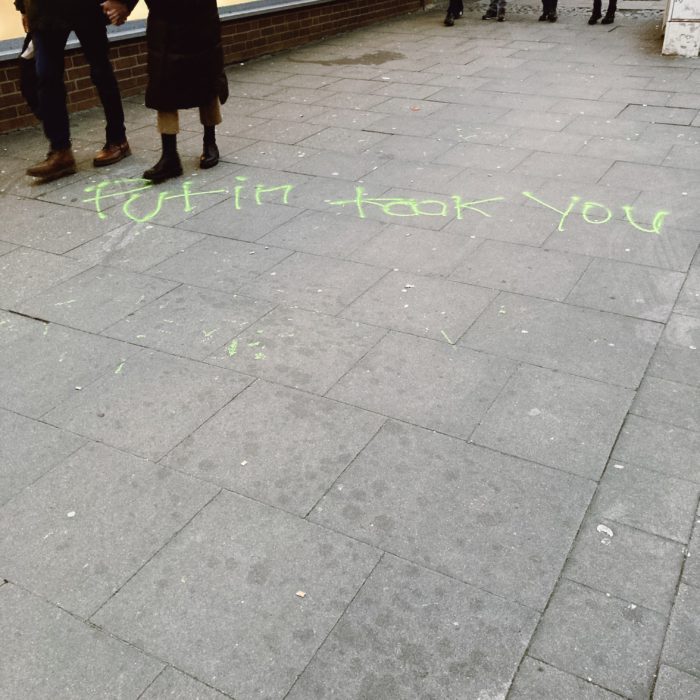 Putin took you